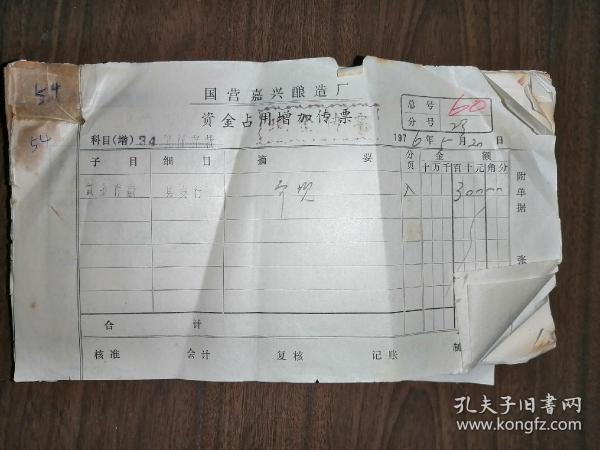 54
54
国营嘉兴酿造厂
资金占用增加传票
总号 60
分号 23
科目(增) 34
1976年 月20日
子目 细目 摘要 分页 金额
十万千百十元角分
附单据 张
县支行
合计
核准 会计 复核 记账 制
孔夫子旧书网
www.kongfz.com